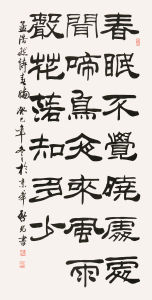 春眠不覺曉處處
聞啼鳥夜來風雨
聲花落知多少
孟浩然詩春曉癸巳年冬於京華書